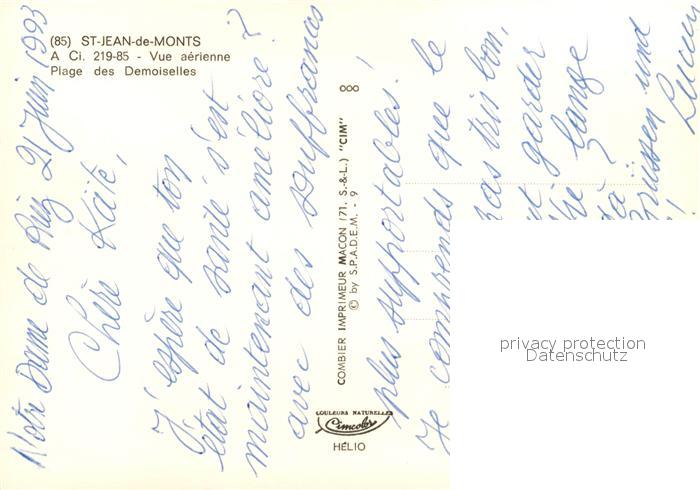 (85) ST-JEAN-de-MONTS
A Ci. 219-85 - Vue aérienne
Plage des Demoiselles
Notre Dame de Riez 21 Juin 1993
Chère Käte,
J'espère que ton
état de santé s'est
maintenant amélioré?
avec des souffrances
plus supportables!
Je comprends que le
pas très bon,
garder
lange
Grüssen und
COMBIER IMPRIMEUR MACON (71. S.-&-L.) "CIM"
© by S.P.A.D.E.M. - 9
COULEURS NATURELLES
Cimcolor
HÉLIO
privacy protection
Datenschutz